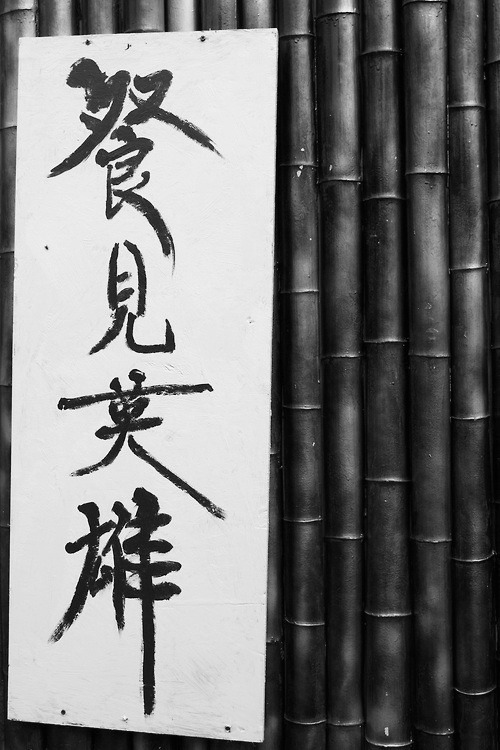 餐見英雄